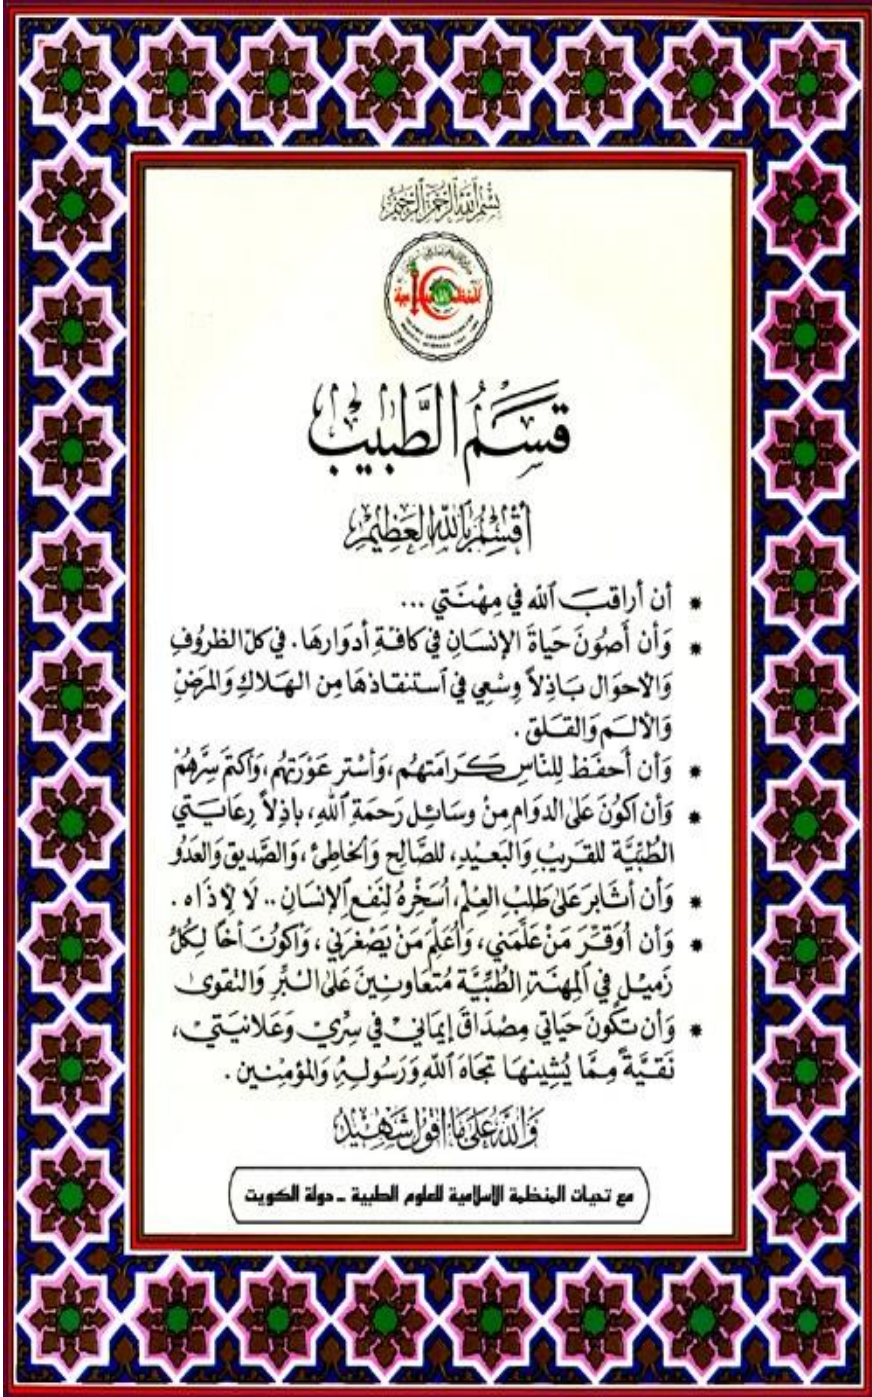 بسم الله الرحمن الرحيم
المنظمة الإسلامية
ISLAMIC ORGANIZATION FOR
MEDICAL SCIENCES
قَسَمُ الطَّبيب
أُقْسِمُ بِاللهِ العَظِيمِ
* أن أراقبَ ٱلله في مِهْنَتي ...
* وَأن أصُونَ حَيَاةَ الإنسَانِ في كافةِ أدوَارهَا. في كلّ الظروُفِ
وَالأحوَال بَاذِلاً وِسْعِي في ٱستنقاذهَا مِن الهَلاكِ وَالمرَضِ
وَالألَم وَالقَلَق .
* وَأن أحفَظ لِلنّاسِ كَرَامَتهُم، وَأسْتر عَوْرَتهُم، وَأكتمَ سِرَّهُمْ
* وَأن أكونَ عَلى الدوَام مِنْ وسَائل رَحمَة ٱللهِ، باذِلاً رعَايَتي
الطبِّيَّة للقَريبِ وَالبَعيدِ، للصَّالِحِ وَالخاطِئ، وَالصَّديق وَالعَدُو
* وَأن أثابرَ عَلى طلبِ العِلْم، أسَخِّرهُ لنِفعِ ٱلإنسَانِ .. لَا لأِذَاه .
* وَأن أُوَقّرَ مَنْ عَلّمَني، وَأعَلّمَ مَنْ يَصْغرَني، وَأكونَ أخًا لِكلِّ
زَميْل في المِهنَةِ الطبِّيَّة مُتعَاونينَ عَلى البِّرِ وَالتقوىٰ
* وَأن تكونَ حَيَاتي مِصْدَاقَ إيمَاني في سِرّي وَعَلانيَتي،
نَقيَّةً مِمَّا يُشِينهَا تجَاهَ ٱللهِ وَرَسُولِهِ وَالمؤمِنْين .
وَاللهُ عَلى مَا أقولُ شَهِيْد
مع تحيات المنظمة الاسلامية للعلوم الطبية - دولة الكويت